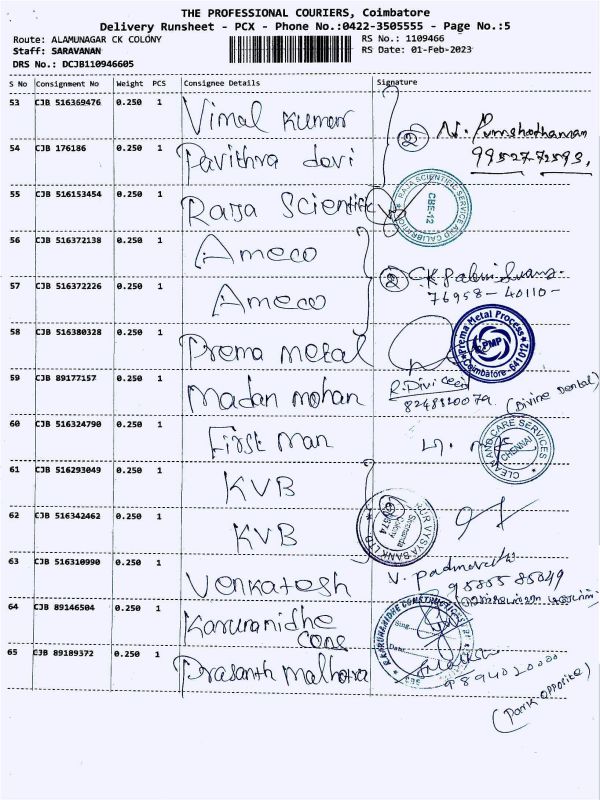 THE PROFESSIONAL COURIERS, Coimbatore
Delivery Runsheet - PCX - Phone No.:0422-3505555 - Page No.:5
Route: ALAMUNAGAR CK COLONY RS No.: 1109466
Staff: SARAVANAN RS Date: 01-Feb-2023
DRS No.: DCJB110946605
S No Consignment No Weight PCS Consignee Details Signature
53 CJB 516369476 0.250 1 Vimal Kumar
N. Purushothaman
54 CJB 176186 0.250 1 Pavithra devi 99527-72593,
55 CJB 516153454 0.250 1 Raja Scientific
RAJA SCIENTIFIC SERVICE AND CALIBRATION
CBE-12
56 CJB 516372138 0.250 1 Ameco
57 CJB 516372226 0.250 1 Ameco 76958-40110-
58 CJB 516380328 0.250 1 Prema metal
Prema Metal Process
PMP
Coimbatore-641 012
59 CJB 89177157 0.250 1 Madan mohan
(Divine Dental)
60 CJB 516324790 0.250 1 First man
CLEAN AND CARE SERVICES
CHENNAI
61 CJB 516293049 0.250 1 KVB
VYSYA BANK LTD
62 CJB 516342462 0.250 1 KVB
63 CJB 516310990 0.250 1 Venkatesh
95855 85049
64 CJB 89146504 0.250 1 Karunanidhe
cons
KARUNANIDHE CONSTRUCTIONS
65 CJB 89189372 0.250 1 Prasanth Malhotra
9894020000
(Park opposite)